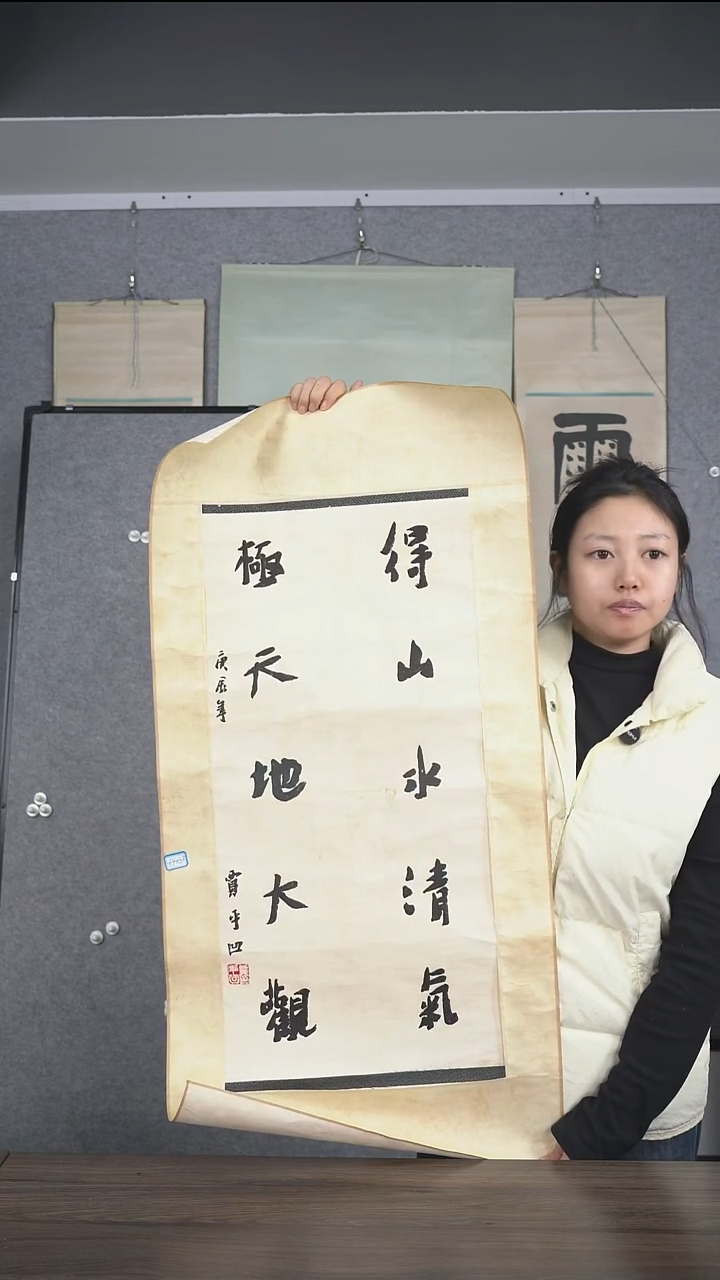 得山水清氣
極天地大觀
庚辰年
賈平凹